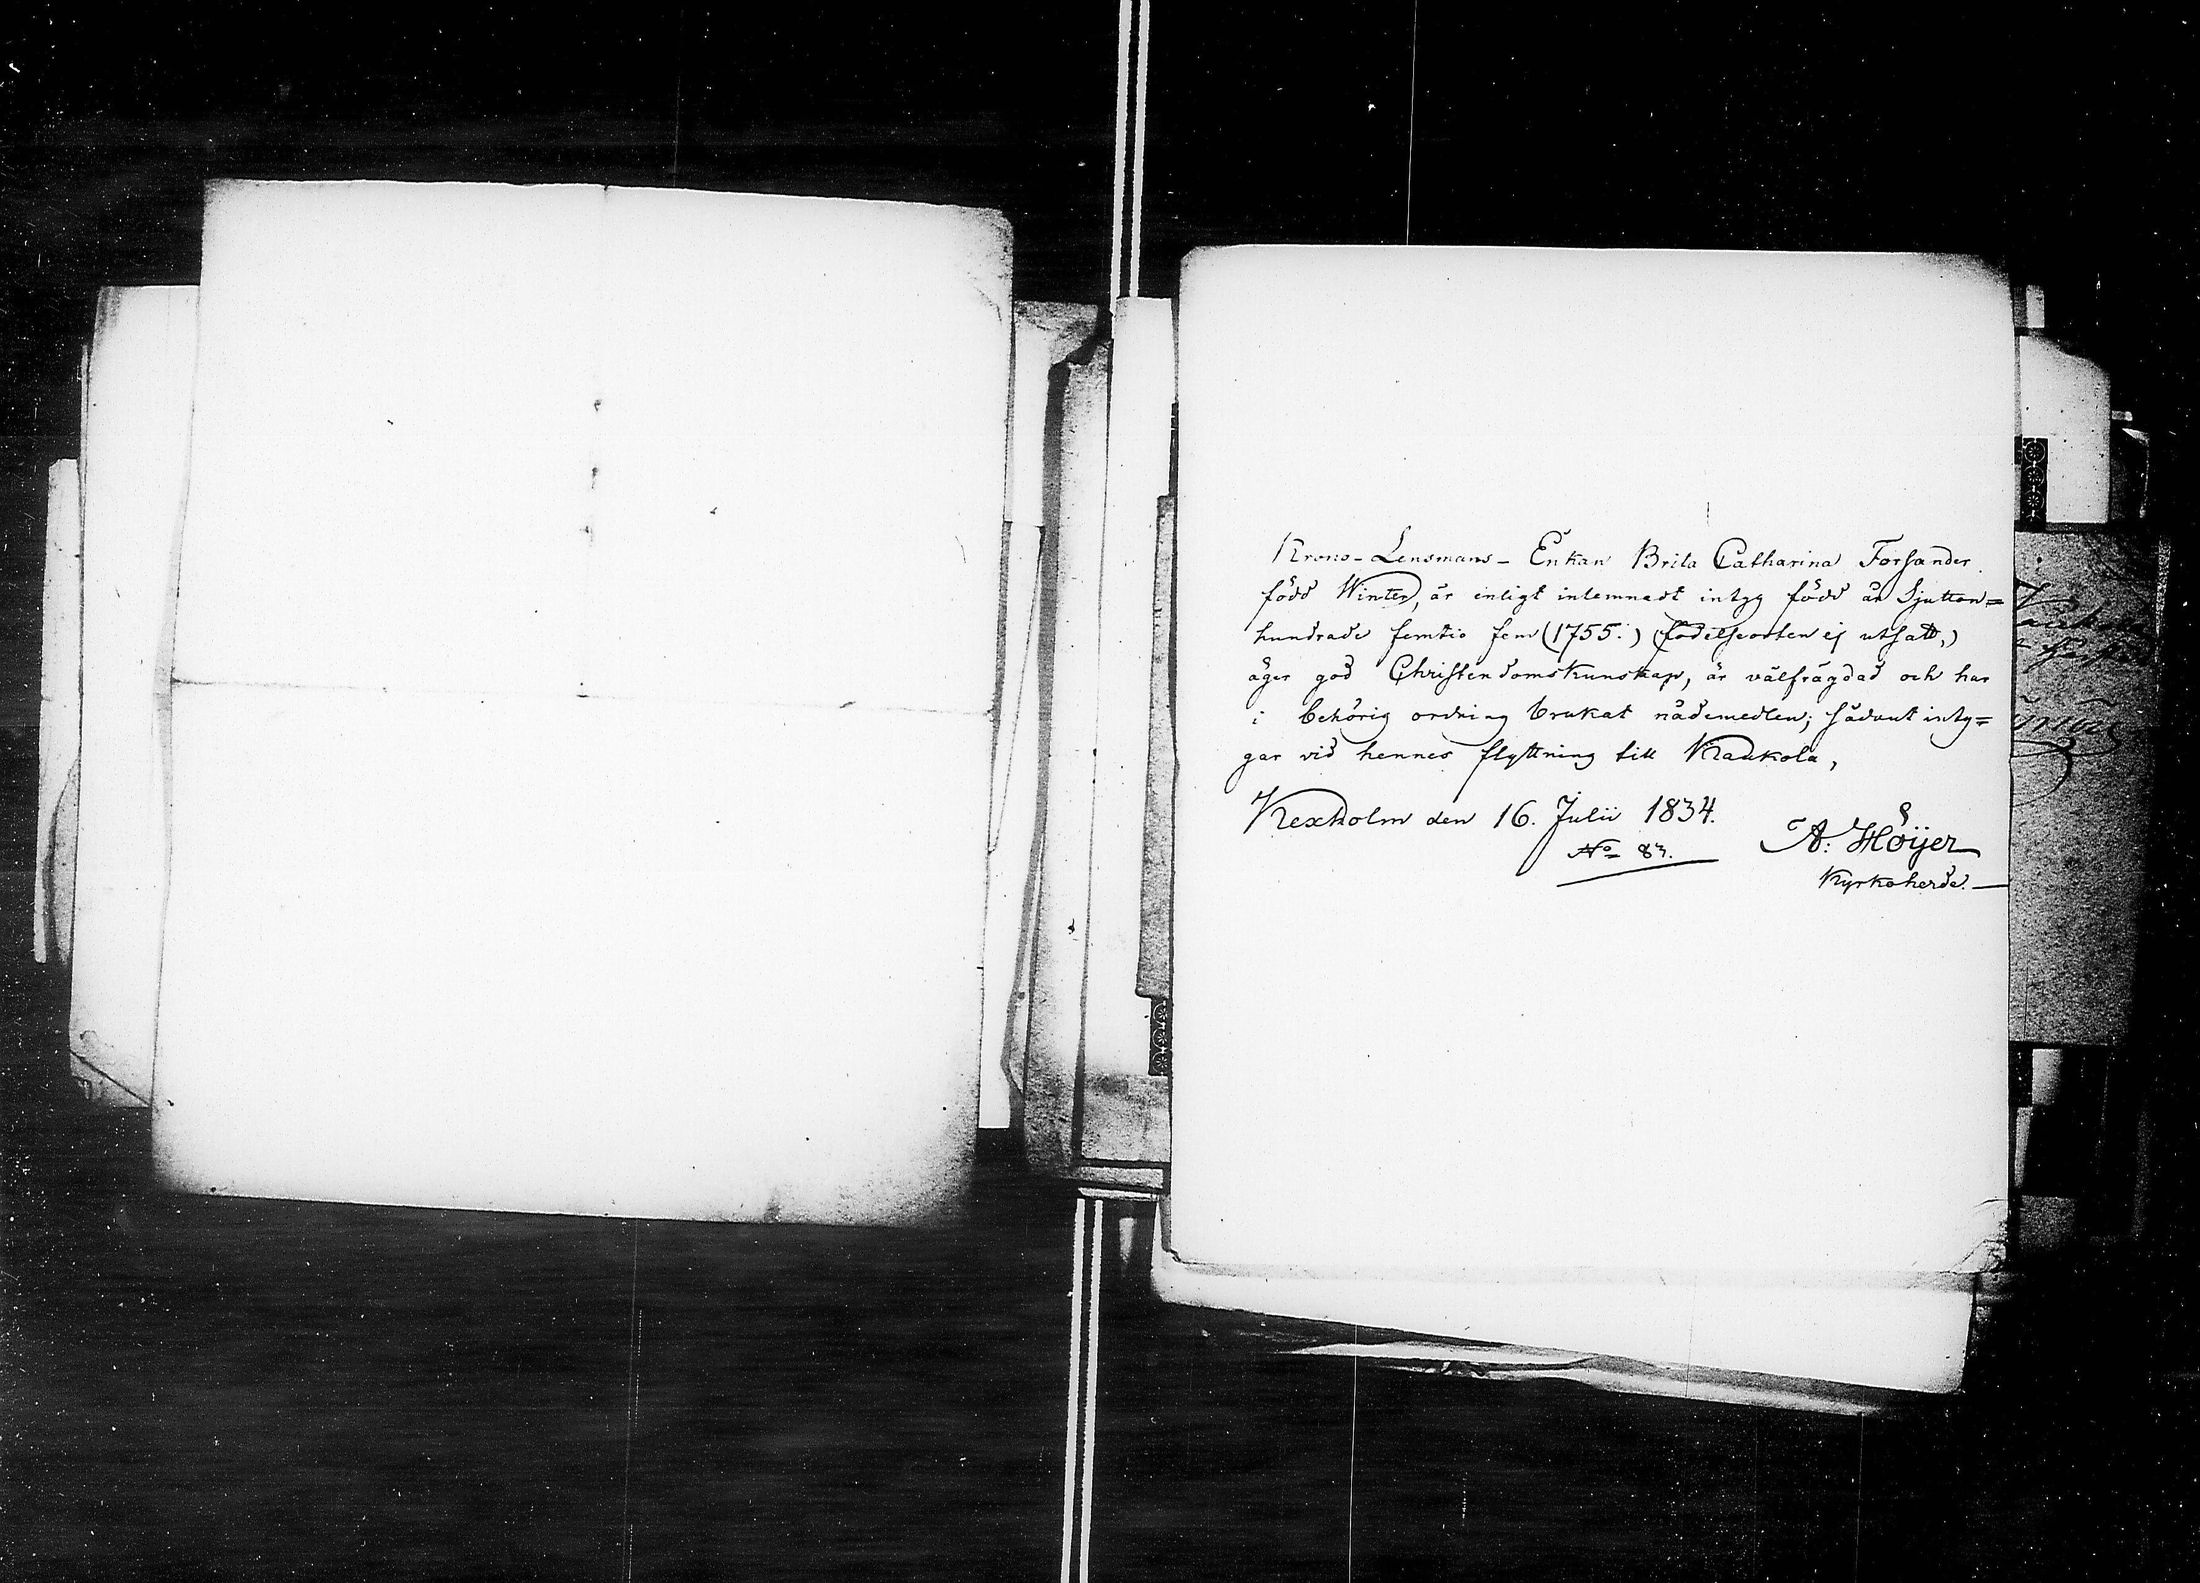 Krono-Lensmans-Enkan Brita Catharina Forsander
född Winter, är enligt inlemnadt intyg född år Sjutton=
hundrade femtio fem (1755.) (födelseorten ej utsatt,)
äger god Christendomskunskap, är välfrägdad och har
i behörig ordning brukat nådemedlen; sådant inty=
gar vid hennes flyttning till Kaukola,
Kexholm den 16. Julii 1834.
No 83.
A. Höijer
Kyrkoherde.